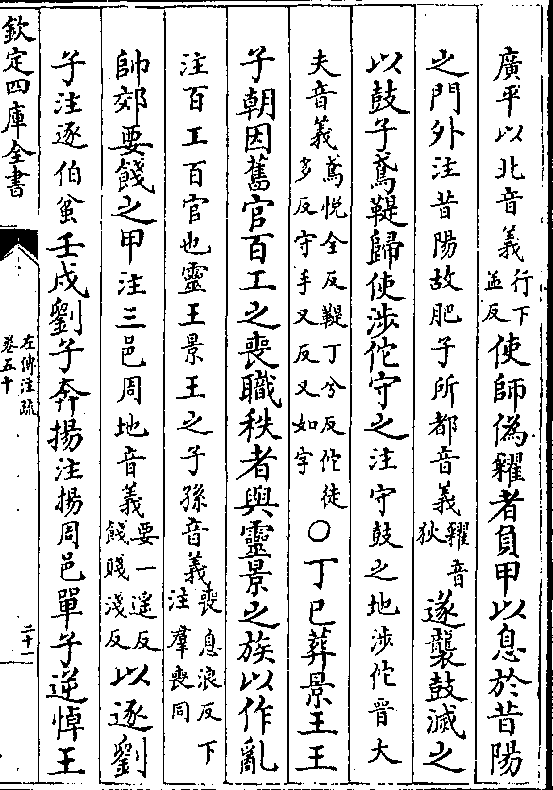 廣平以北音義行下孟反使師偽糴者負甲以息於昔陽
之門外注昔陽故肥子所都音義糴音狄遂襲鼓滅之
以鼓子鳶鞮歸使涉佗守之注守鼓之地涉佗晉大
夫音義鳶悦全反鞮丁兮反佗徒多反守手又反又如字○丁巳葬景王王
子朝因舊官百工之喪職秩者與靈景之族以作亂
注百工百官也靈王景王之子孫音義喪息浪反下注羣喪同
帥郊要餞之甲注三邑周地音義要一遥反餞賤淺反以逐劉
子注逐伯蚠壬戌劉子奔揚注揚周邑單子逆悼王
欽定四庫全書
左傳注疏
卷五十
二十